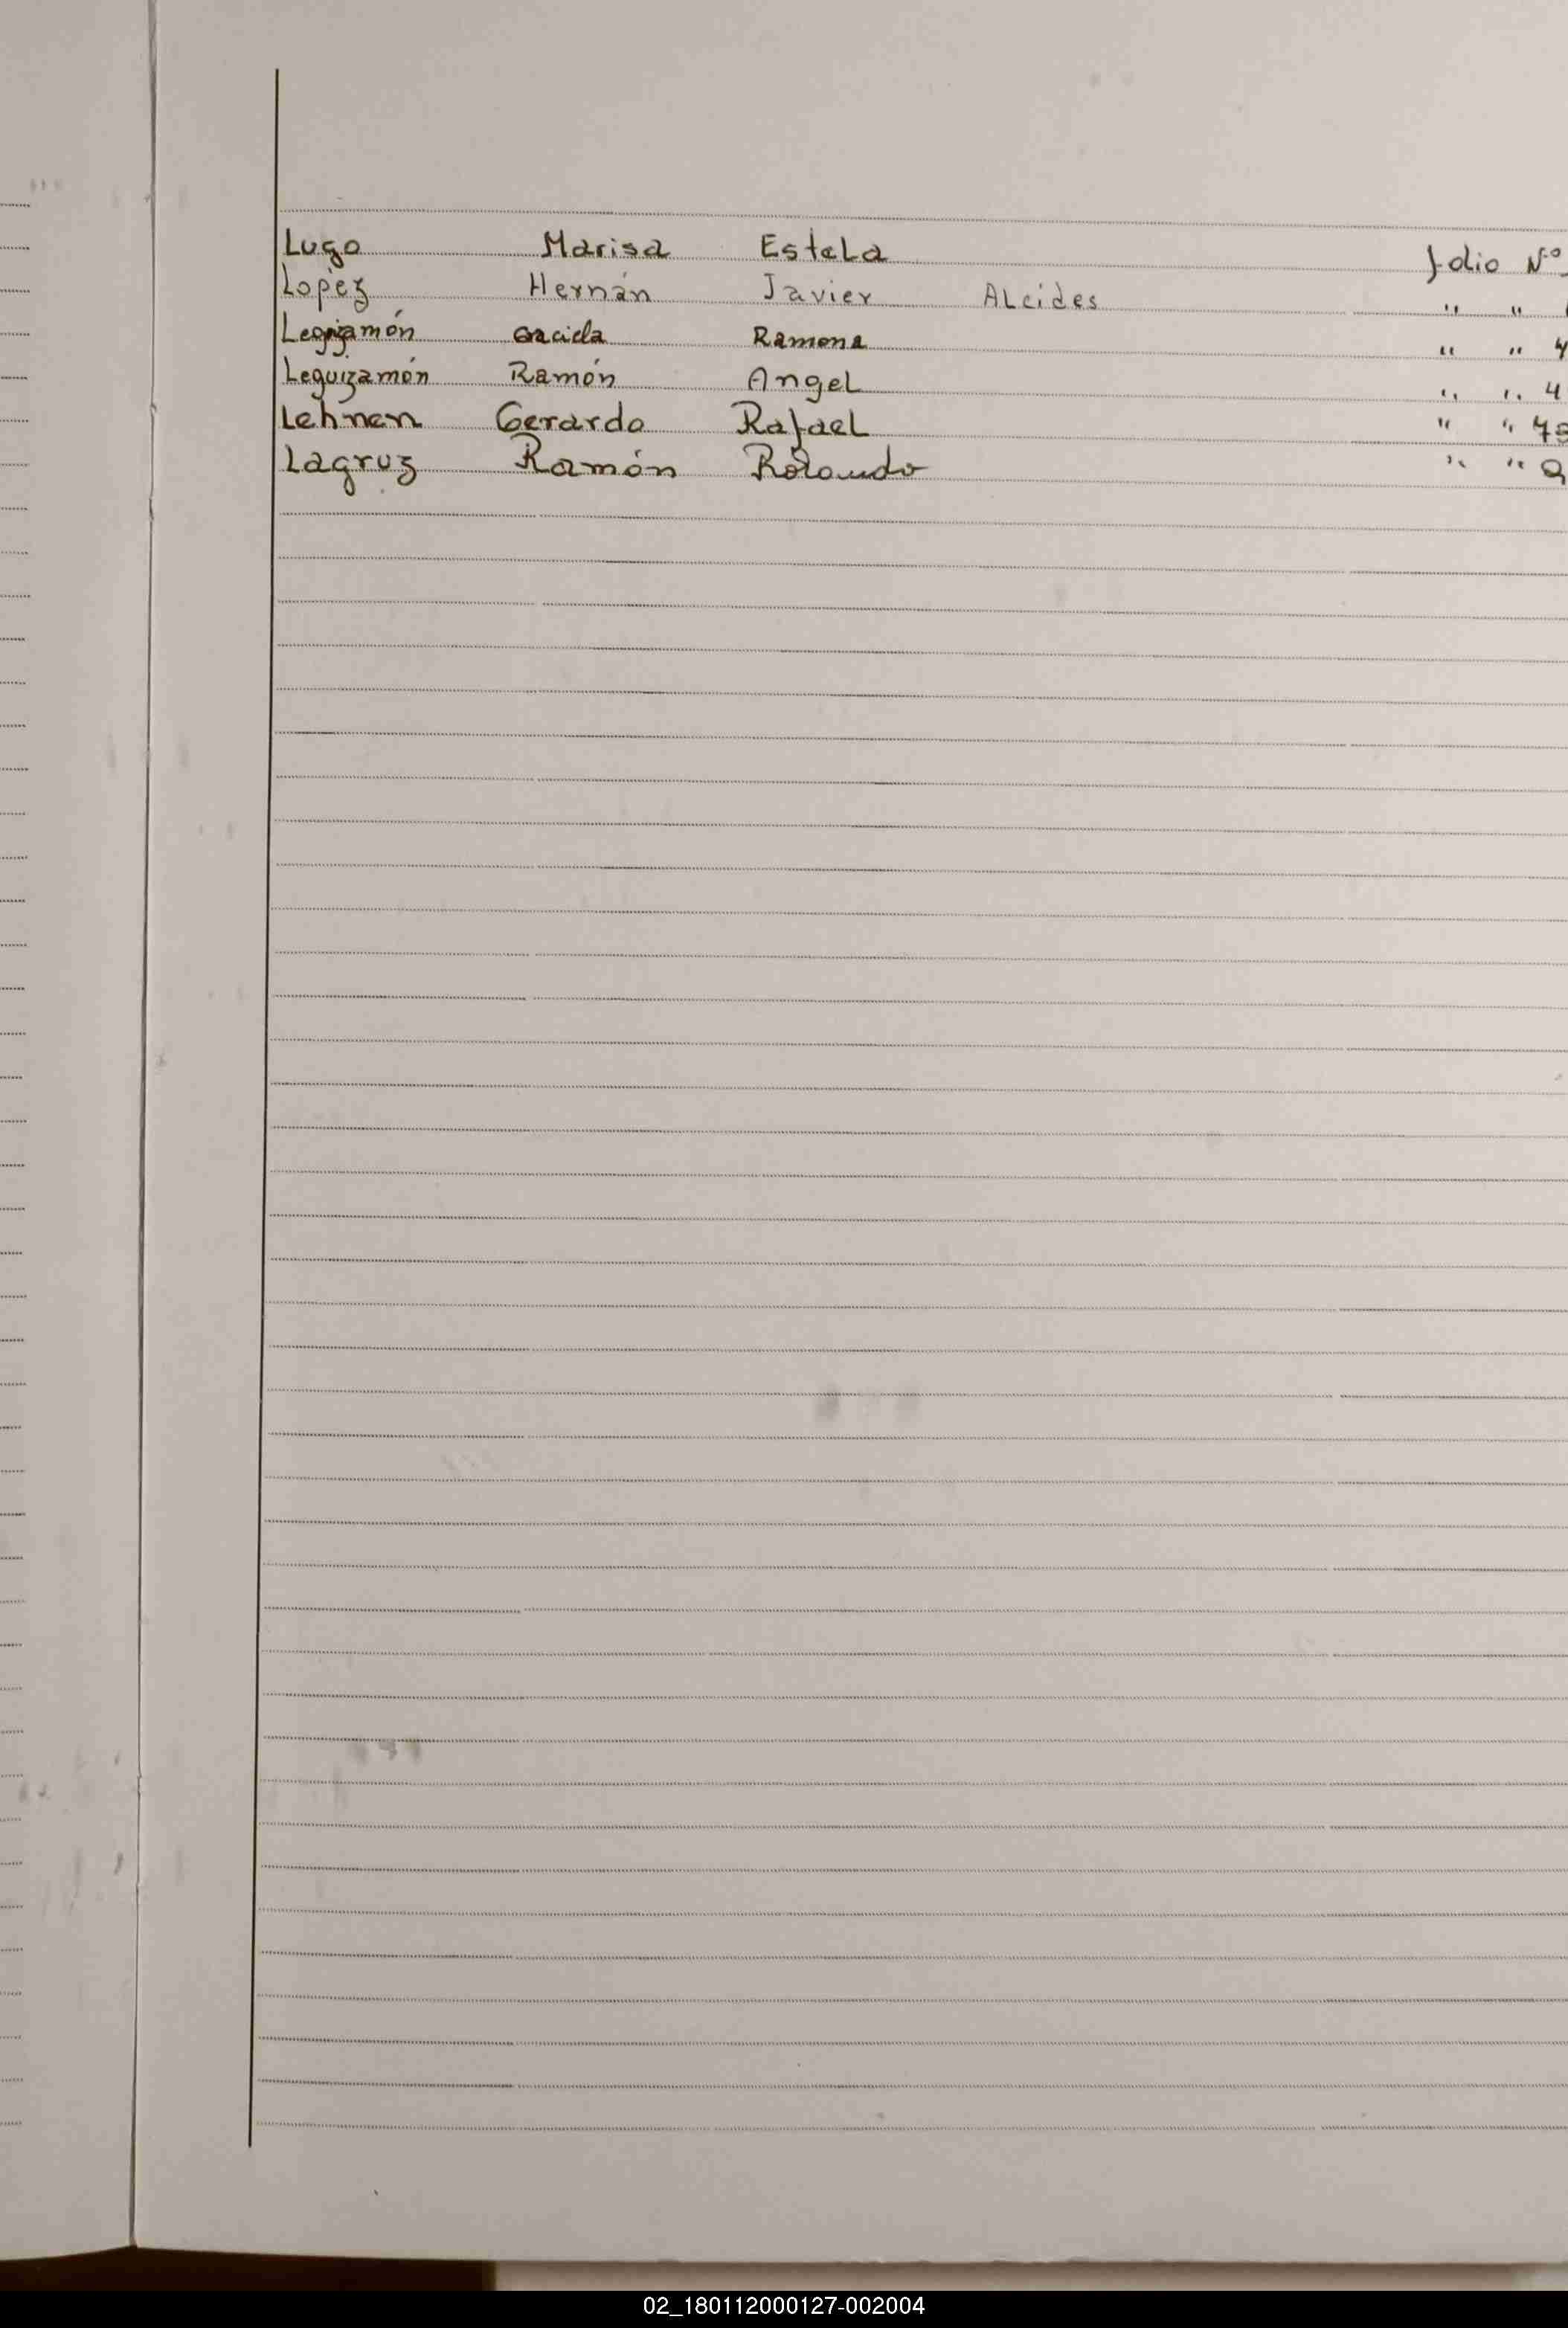 Lugo Marisa Estela folio Nº
Lopez Hernán Javier Alcides " "
Leguizamón Graciela Ramona " " 4
Leguizamón Ramón Angel " " 4
Lehnen Gerardo Rafael " "
Lagruz Ramón Rolando " "
02_180112000127-002004